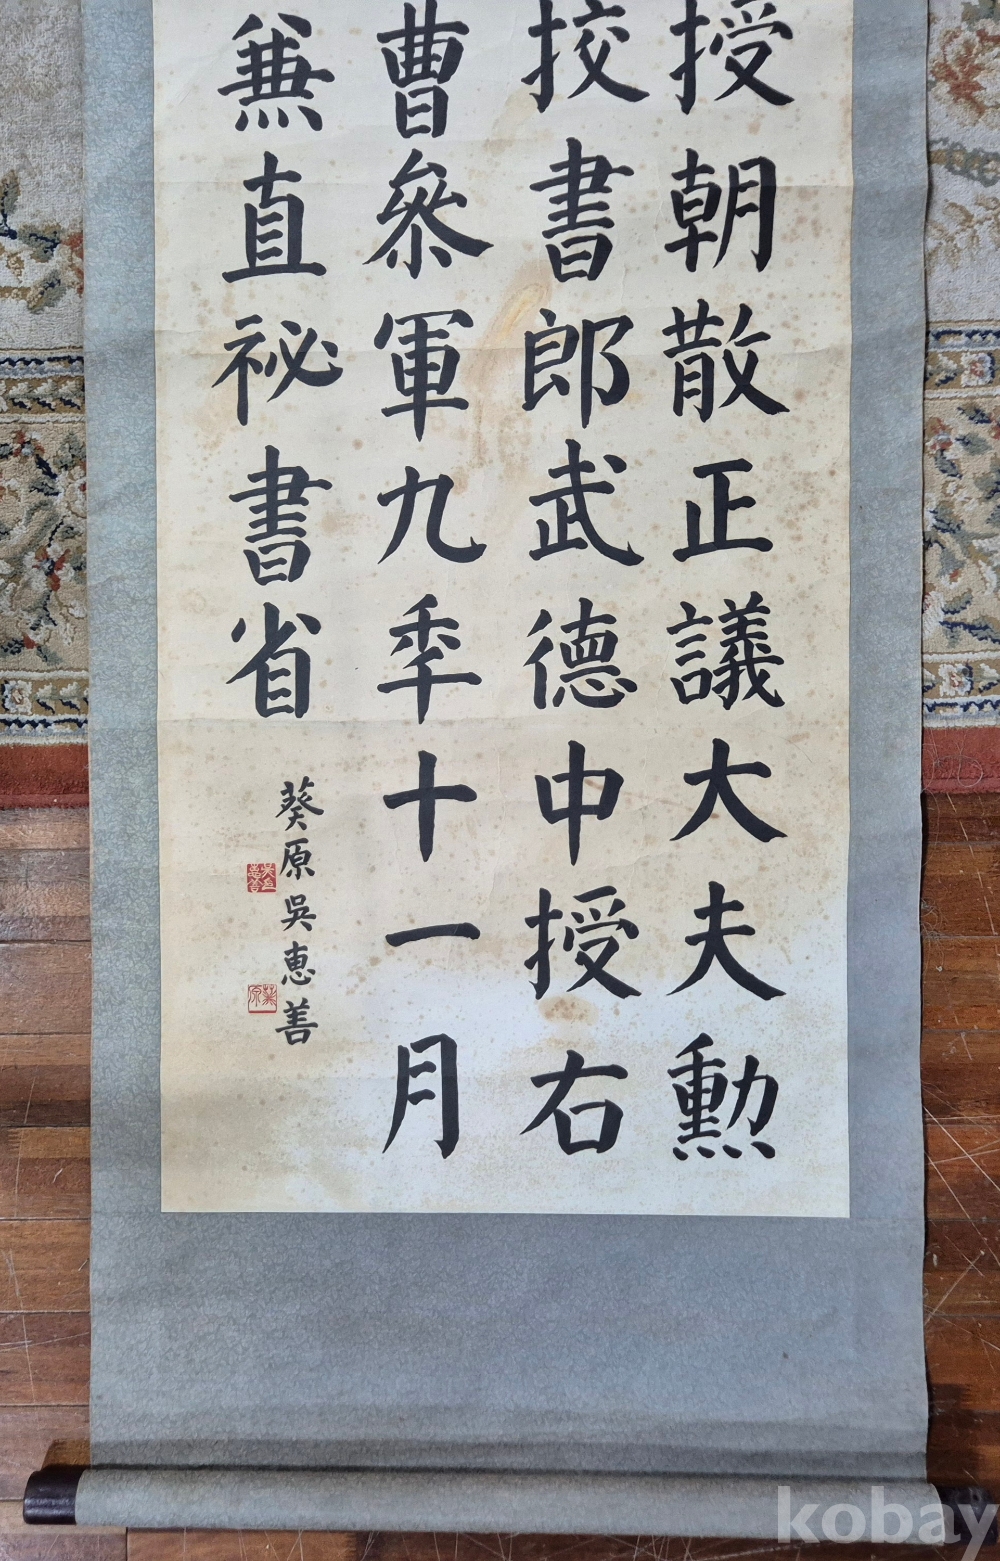 授朝散正議大夫勳
挍書郎武德中授右
曹參軍九季十一月
兼直祕書省
葵原吳惠善
kobay